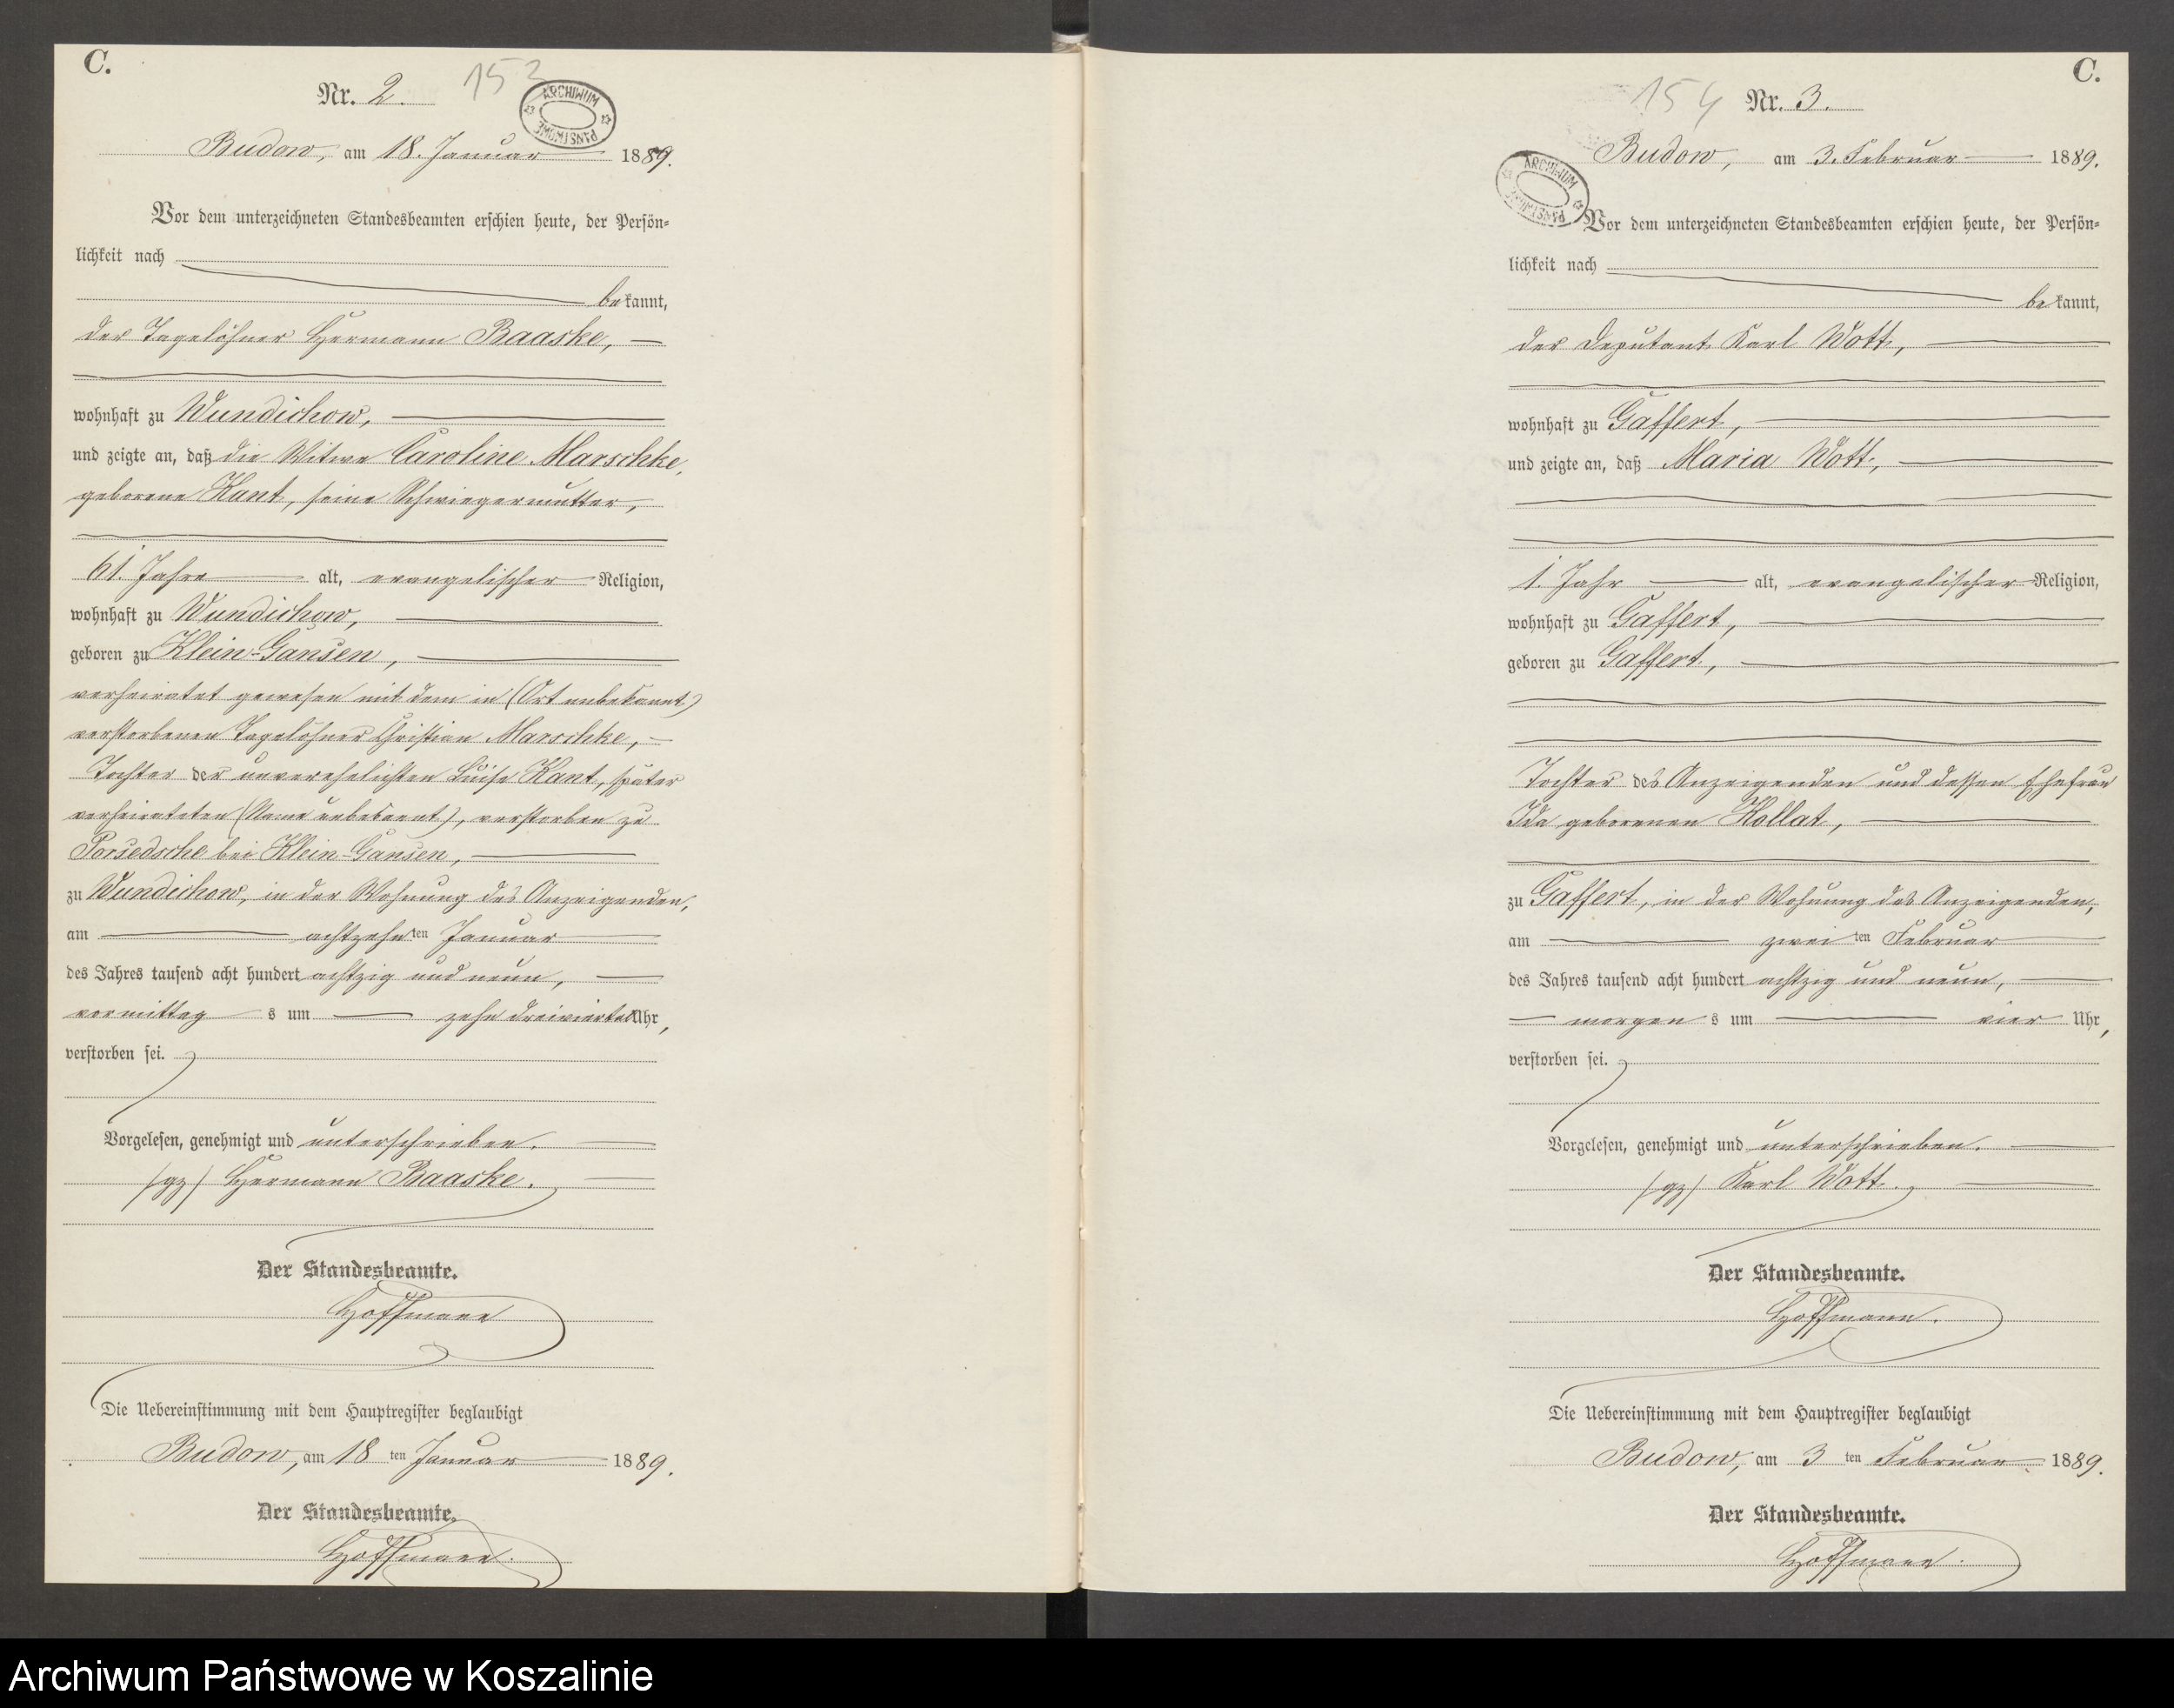 C.
153
Nr. 2.
ARCHIWUM PAŃSTWOWE
Budow, am 18. Januar 1889.
Vor dem unterzeichneten Standesbeamten erschien heute, der Persön=
lichkeit nach
bekannt,
der Tagelöhner Hermann Baaske,
wohnhaft zu Wundichow,
und zeigte an, daß die Witwe Caroline Marschke,
geborene Kant, seine Schwiegermutter,
61. Jahre alt, evangelischer Religion,
wohnhaft zu Wundichow,
geboren zu Klein-Gansen,
verheiratet gewesen mit dem in (Ort unbekannt)
verstorbenen Tagelöhner Christian Marschke,
Tochter der unverehelichten Luise Kant, später
verheirateten (Name unbekannt), verstorben zu
Porsedsche bei Klein-Gansen,
zu Wundichow, in der Wohnung des Anzeigenden,
am achtzehnten Januar
des Jahres tausend acht hundert achtzig und neun,
vormittags um zehn dreiviertel Uhr,
verstorben sei.
Vorgelesen, genehmigt und unterschrieben.
/gz/ Hermann Baaske.
Der Standesbeamte.
Hoffmann
Die Uebereinstimmung mit dem Hauptregister beglaubigt
Budow, am 18ten Januar 1889.
Der Standesbeamte.
Hoffmann.
C.
154
Nr. 3.
ARCHIWUM PAŃSTWOWE
Budow, am 3. Februar 1889.
Vor dem unterzeichneten Standesbeamten erschien heute, der Persön=
lichkeit nach
bekannt,
der Deputant Karl Wott,
wohnhaft zu Gaffert,
und zeigte an, daß Maria Wott,
1. Jahr alt, evangelischer Religion,
wohnhaft zu Gaffert,
geboren zu Gaffert,
Tochter des Anzeigenden und dessen Ehefrau
Ida geborenen Kollat,
zu Gaffert, in der Wohnung des Anzeigenden,
am zweiten Februar
des Jahres tausend acht hundert achtzig und neun,
morgens um vier Uhr,
verstorben sei.
Vorgelesen, genehmigt und unterschrieben.
/gz/ Karl Wott.
Der Standesbeamte.
Hoffmann.
Die Uebereinstimmung mit dem Hauptregister beglaubigt
Budow, am 3ten Februar 1889.
Der Standesbeamte.
Hoffmann.
Archiwum Państwowe w Koszalinie